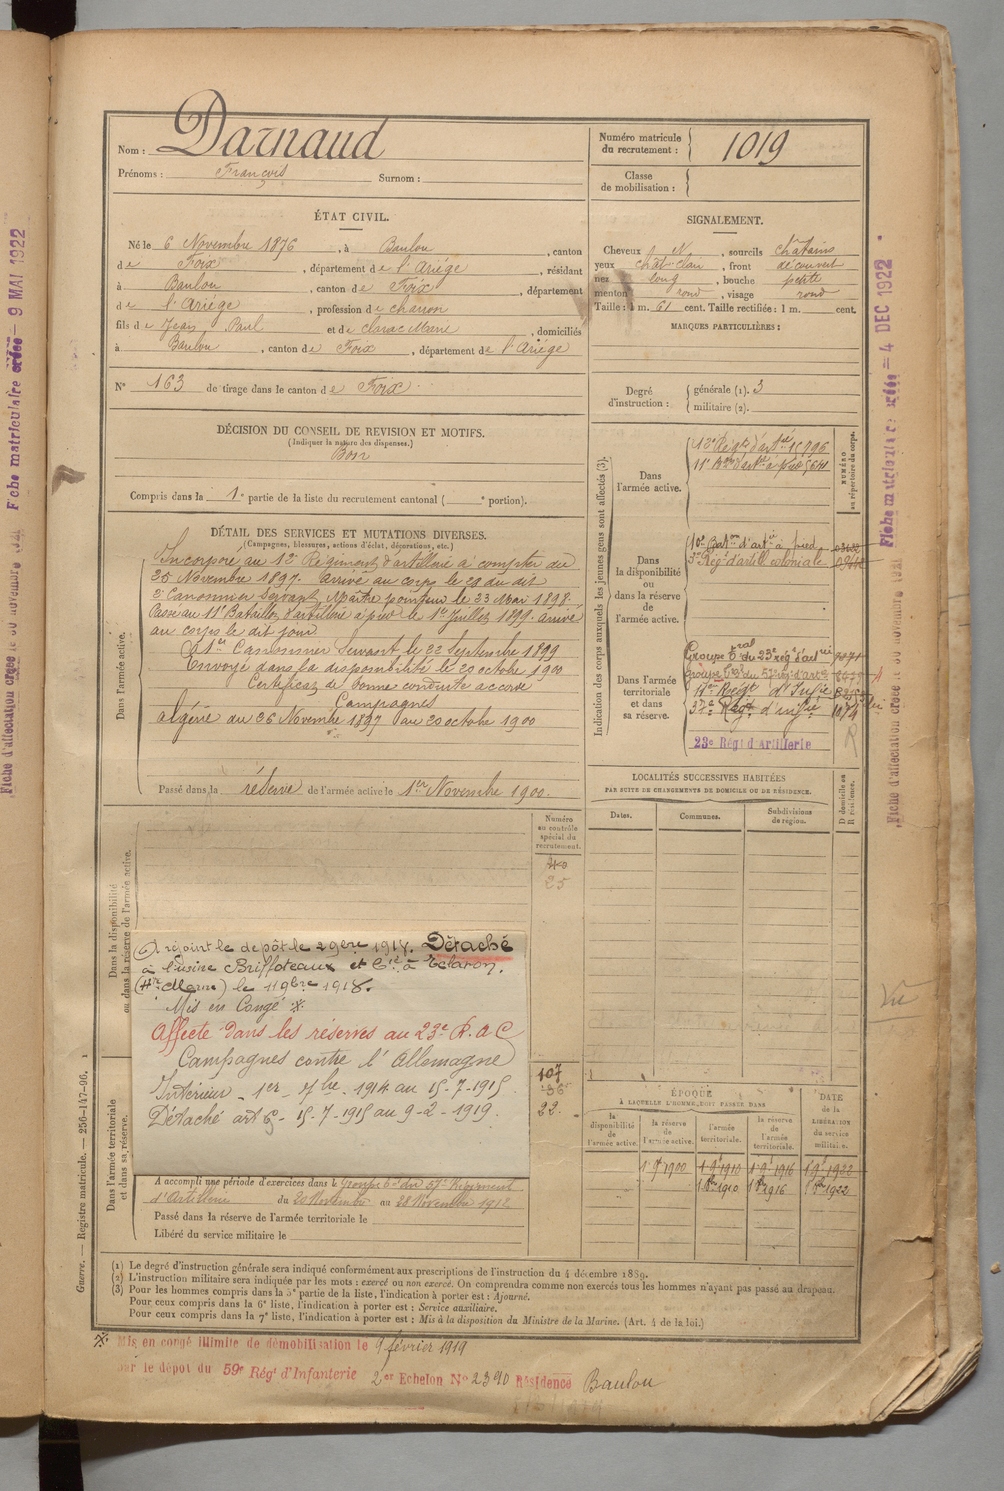 Nom : Darnaud
Prénoms : François Surnom :
Numéro matricule du recrutement : 1019
Classe de mobilisation :
ÉTAT CIVIL.
Né le 6 Novembre 1876, à Baulou, canton
de Foix, département de l'Ariége, résidant
à Baulou, canton de Foix, département
de l'Ariége, profession de charron
fils de Jean Paul et de Clarac Marie, domiciliés
à Baulou, canton de Foix, département de l'Ariége
N° 163 de tirage dans le canton de Foix
SIGNALEMENT.
Cheveux N, sourcils châtains
yeux chât-clair, front découvert
nez long, bouche petite
menton rond, visage rond
Taille : 1 m. 61 cent. Taille rectifiée : 1 m. cent.
MARQUES PARTICULIÈRES :
Degré d'instruction : générale (1). 3
militaire (2).
DÉCISION DU CONSEIL DE REVISION ET MOTIFS.
(Indiquer la nature des dispenses.)
Bon
Compris dans la 1e partie de la liste du recrutement cantonal ( e portion).
DÉTAIL DES SERVICES ET MUTATIONS DIVERSES.
(Campagnes, blessures, actions d'éclat, décorations, etc.)
Dans l'armée active.
Incorporé au 12e Régiment d'artillerie à compter du
25 Novembre 1897. arrivé au corps le 29 du dit
2e Canonnier Servant Maître pointeur le 23 Mai 1898.
Passé au 11e Bataillon d'artillerie à pied le 1er Juillet 1899. arrivé
au corps le dit jour
1er Canonnier Servant le 22 Septembre 1899
Envoyé dans la disponibilité le 20 octobre 1900
Certificat de bonne conduite accordé
Campagnes
algérie du 26 Novembre 1897 au 20 octobre 1900
Passé dans la réserve de l'armée active le 1er Novembre 1900.
Indication des corps auxquels les jeunes gens sont affectés (3).
NUMÉRO au répertoire du corps.
Dans l'armée active.
12e Régt d'artie
11e Bon d'artie à pied
Dans la disponibilité ou dans la réserve de l'armée active.
10e Baton d'artie à pied
3e Régt d'artill. coloniale
Dans l'armée territoriale et dans sa réserve.
Groupe tral du 23e régt d'artie
Groupe tral du 57e régt d'artie
Régt d'Infie
Régt d'infie
23e Régt d'Artillerie
LOCALITÉS SUCCESSIVES HABITÉES
PAR SUITE DE CHANGEMENTS DE DOMICILE OU DE RÉSIDENCE.
Dates. Communes. Subdivisions de région. D domicile ou R résidence.
Dans la disponibilité ou dans la réserve de l'armée active.
Numéro au contrôle spécial du recrutement.
25
A rejoint le dépôt le 29bre 1918. Détaché
à l'usine Briffoteaux et Cie à Eclaron.
(Hte Marne) le 119bre 1918.
Mis en Congé *
Affecté dans les réserves au 23e R.a C
Campagnes contre l'Allemagne
Intérieur - 1er 7bre 1914 au 15-7-1915
Détaché art 6 - 15-7-1915 au 9-2-1919.
107
22.
Dans l'armée territoriale et dans sa réserve.
A accompli une période d'exercices dans le Groupe tal du 57e Régiment
d'Artillerie du 20 Novembre au 28 Novembre 1912
Passé dans la réserve de l'armée territoriale le
Libéré du service militaire le
ÉPOQUE
À LAQUELLE L'HOMME DOIT PASSER DANS
la disponibilité de l'armée active. la réserve de l'armée active. l'armée territoriale. la réserve de l'armée territoriale. DATE de la LIBÉRATION du service militaire.
Vu
(1) Le degré d'instruction générale sera indiqué conformément aux prescriptions de l'instruction du 4 décembre 1889.
(2) L'instruction militaire sera indiquée par les mots : exercé ou non exercé. On comprendra comme non exercés tous les hommes n'ayant pas passé au drapeau.
(3) Pour les hommes compris dans la 5e partie de la liste, l'indication à porter est : Ajourné.
Pour ceux compris dans la 6e liste, l'indication à porter est : Service auxiliaire.
Pour ceux compris dans la 7e liste, l'indication à porter est : Mis à la disposition du Ministre de la Marine. (Art. 4 de la loi.)
* Mis en congé illimité de démobilisation le 9 février 1919
par le dépôt du 59e Régt d'Infanterie 2er Echelon N° 2390 Résidence Baulou
Guerre. — Registre matricule. — 256-147-96.
Fiche matriculaire créée = 9 MAI 1922
Fiche matriculaire créée = 4 DEC 1922